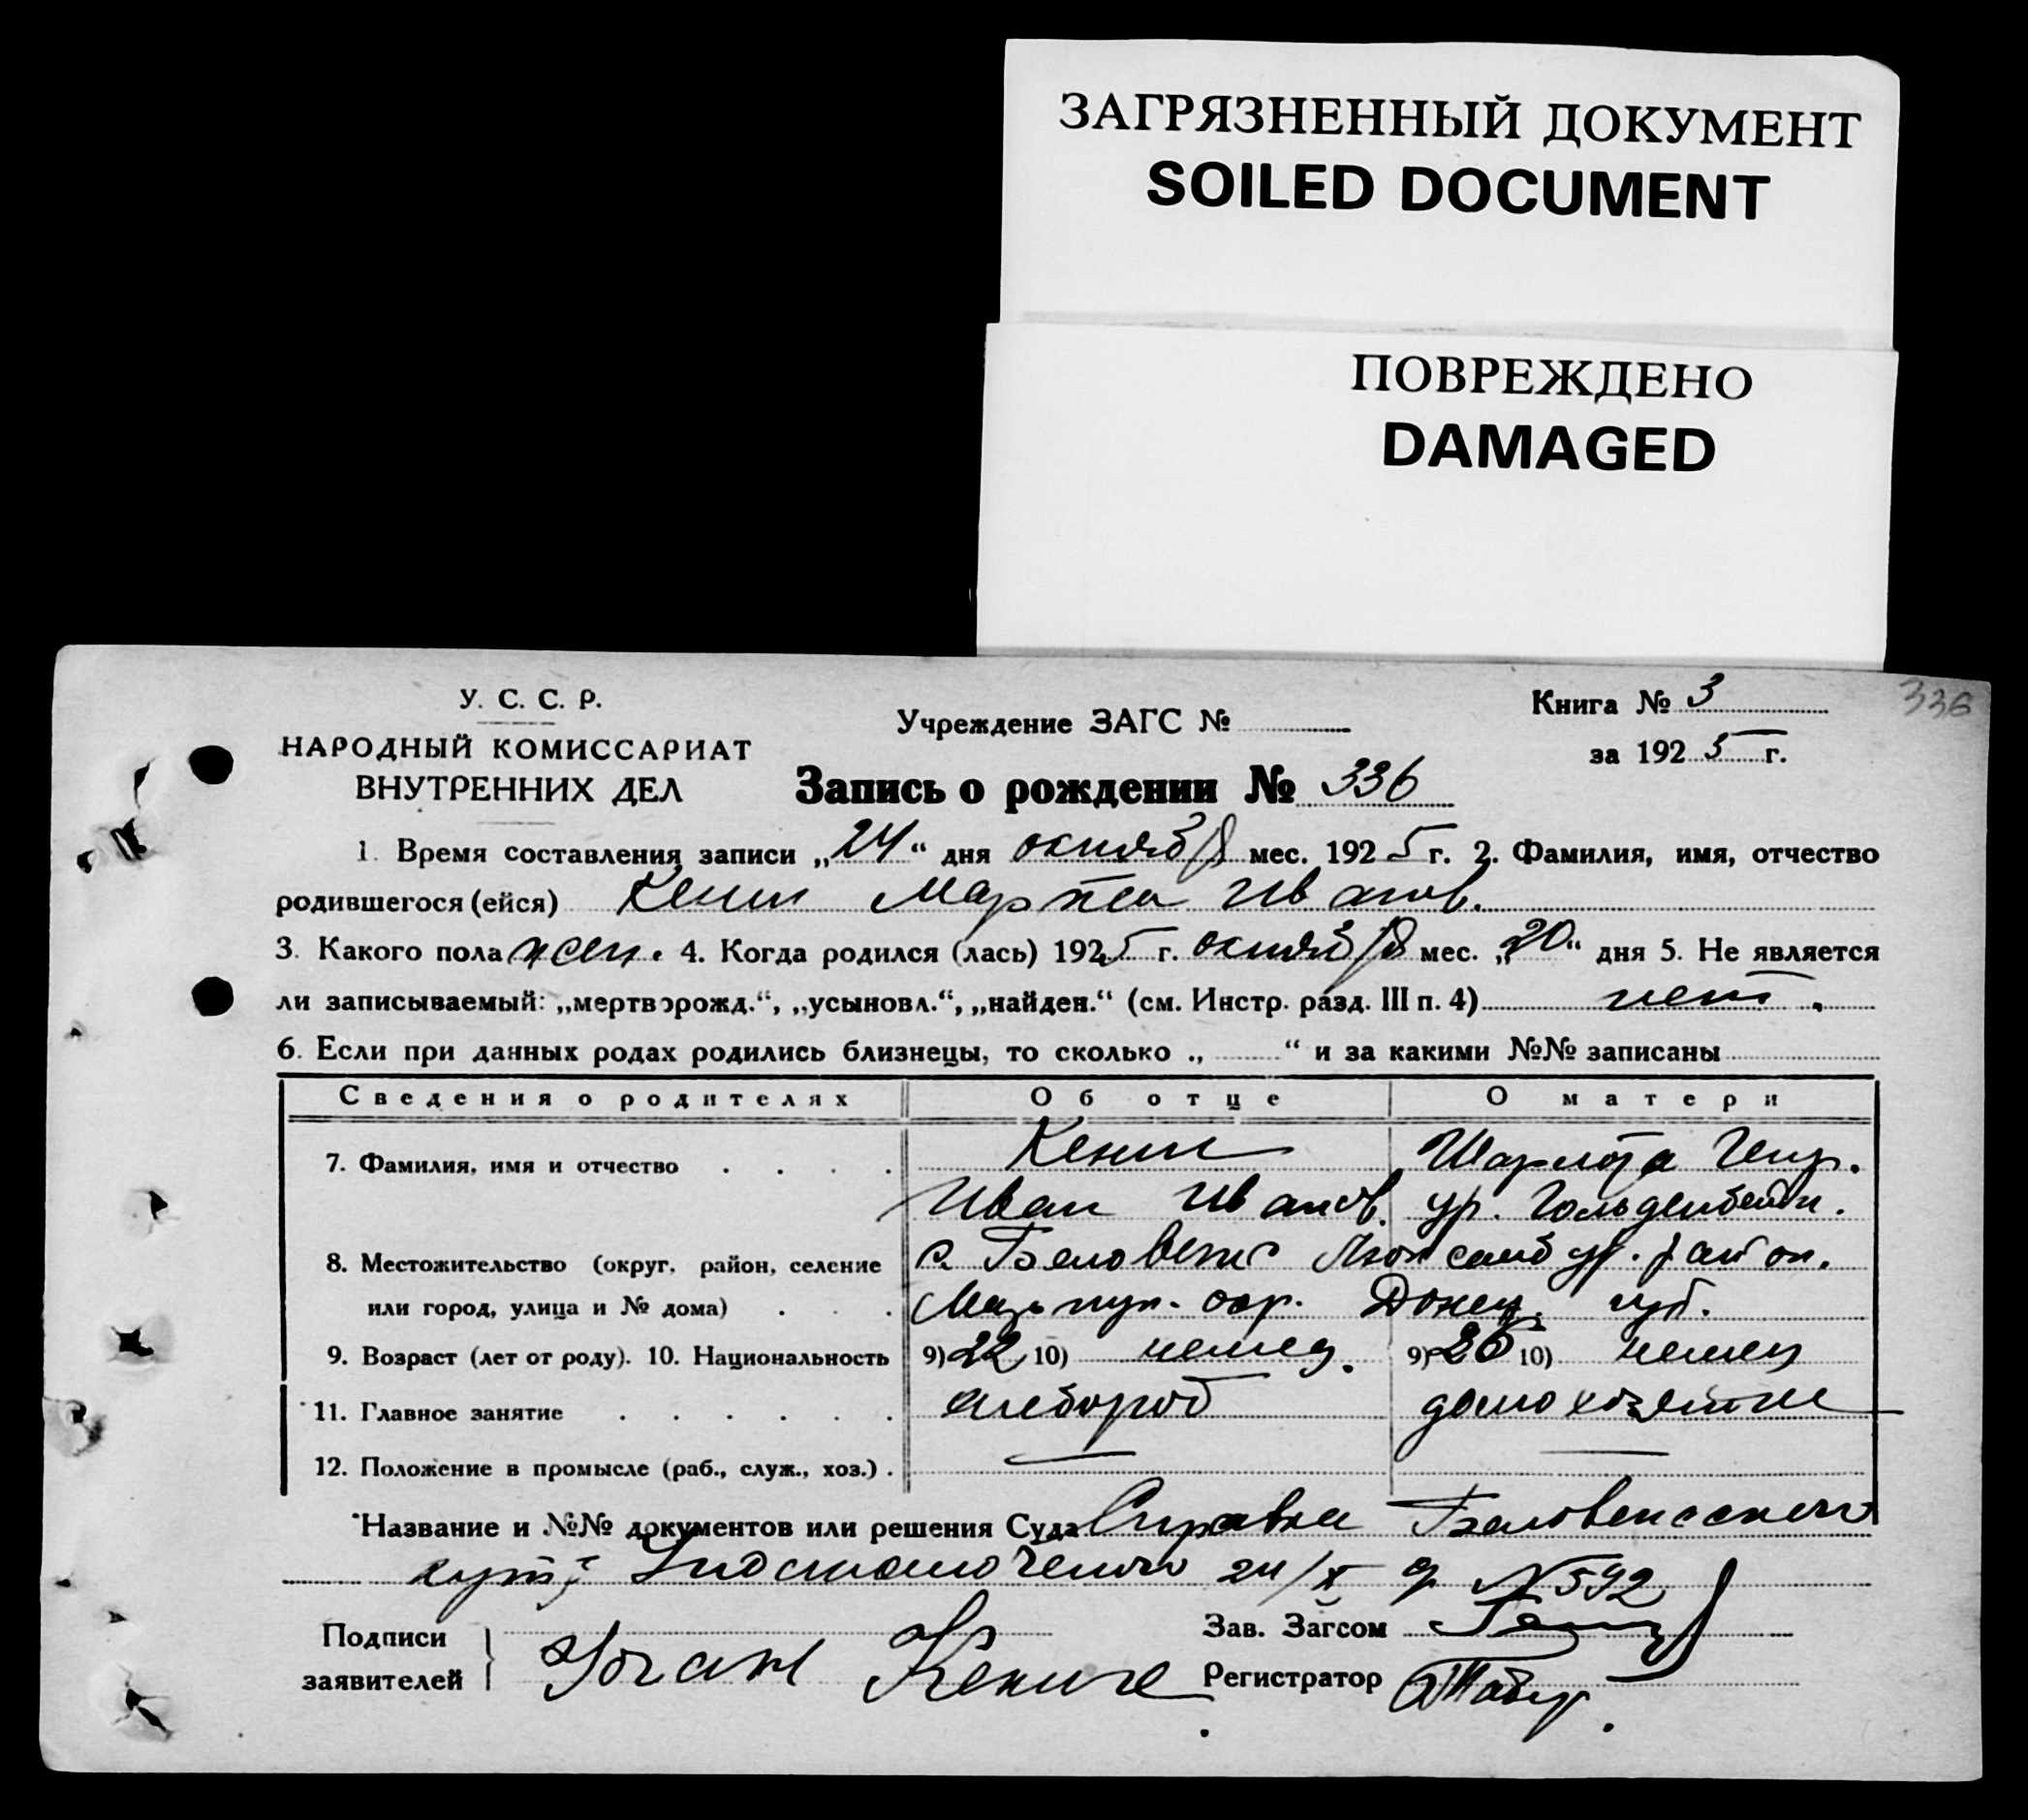 ЗАГРЯЗНЕННЫЙ ДОКУМЕНТ
SOILED DOCUMENT
ПОВРЕЖДЕНО
DAMAGED
336
У. С. С. Р.
НАРОДНЫЙ КОМИССАРИАТ
ВНУТРЕННИХ ДЕЛ
Учреждение ЗАГС №
Книга № 3
за 1925 г.
Запись о рождении № 336
1. Время составления записи „24“ дня октября мес. 1925 г. 2. Фамилия, имя, отчество
родившегося (ейся) Кениг Марта Иванов.
3. Какого пола жен. 4. Когда родился (лась) 1925 г. октября мес. „20“ дня 5. Не является
ли записываемый: „мертворожд.“, „усыновл.“, „найден.“ (см. Инстр. разд. III п. 4) нет.
6. Если при данных родах родились близнецы, то сколько „ “ и за какими №№ записаны
Сведения о родителях Об отце О матери
7. Фамилия, имя и отчество Кениг Шарлота Генр.
Иван Иванов. ур. Гольденбейн.
8. Местожительство (округ, район, селение с. Беловеж Люксембур. район.
или город, улица и № дома) Мариуп. окр. Донец. губ.
9. Возраст (лет от роду). 10. Национальность 9) 22 10) немец. 9) 26 10) немец
11. Главное занятие хлебороб домохозяйка
12. Положение в промысле (раб., служ., хоз.)
Название и №№ документов или решения Суда Справка Беловежского
24/X № 592
Подписи
заявителей
Иоган Кениг
Зав. Загсом
Регистратор